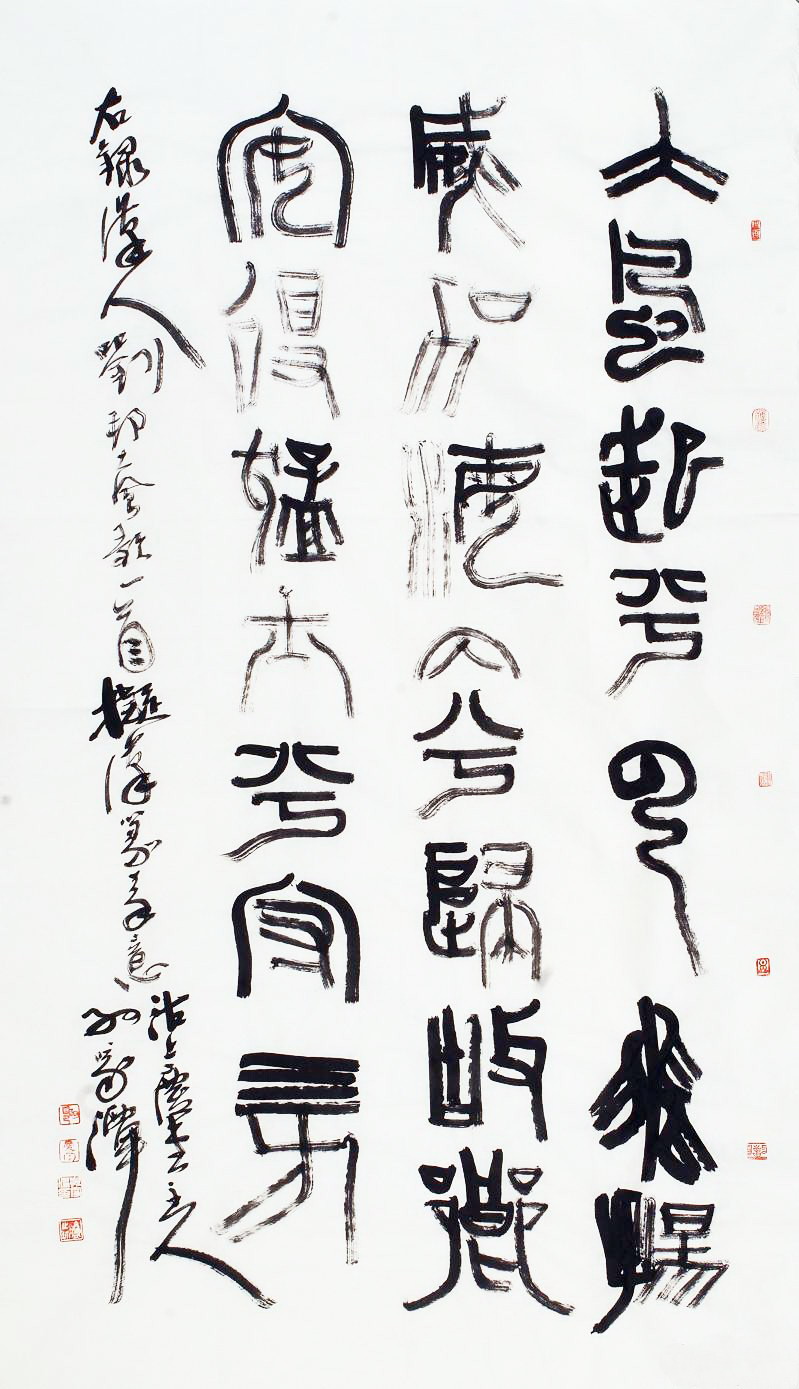 大風起兮云飛揚
威加海内兮歸故鄉
安得猛士兮守四方
右錄漢人劉邦大風歌一首擬漢篆筆意
沽上主人
孫家潭